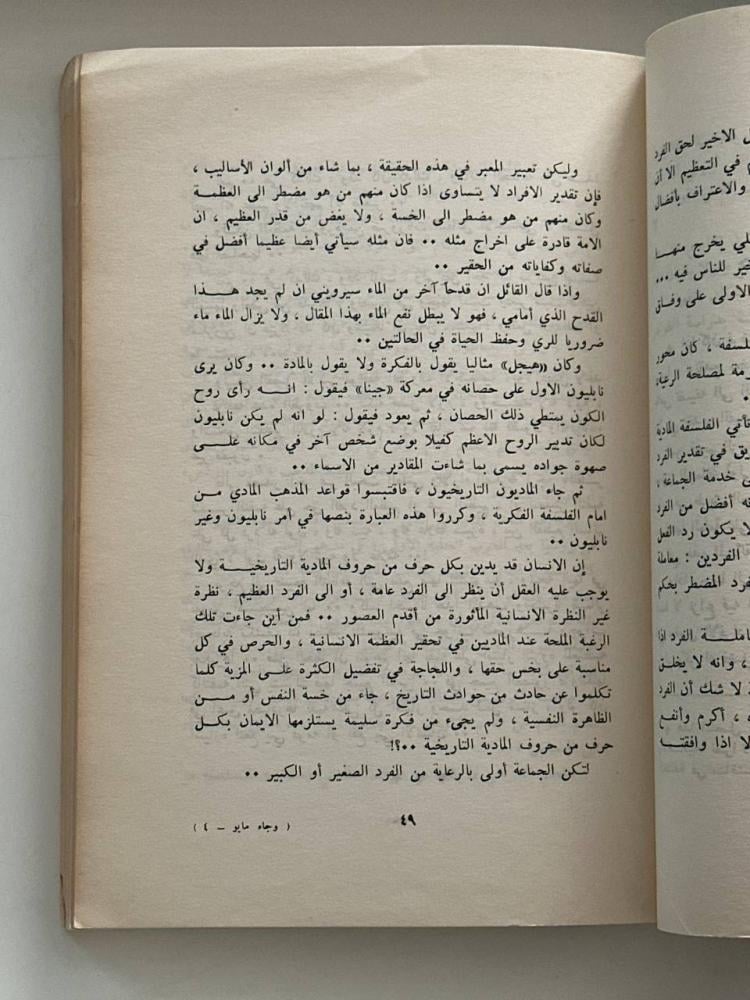 وليكن تعبير المعبر في هذه الحقيقة ، بما شاء من ألوان الأساليب ،
فإن تقدير الافراد لا يتساوى اذا كان منهم من هو مضطر الى العظمة
وكان منهم من هو مضطر الى الخسة ، ولا يغض من قدر العظيم ، ان
الامة قادرة على اخراج مثله .. فان مثله سيأتي أيضا عظيما أفضل في
صفاته وكفاياته من الحقير ..
واذا قال القائل ان قدحاً آخر من الماء سيرويني ان لم يجد هذا
القدح الذي أمامي ، فهو لا يبطل نفع الماء بهذا المقال ، ولا يزال الماء ماء
ضروريا للري وحفظ الحياة في الحالتين .
وكان «هيجل» مثاليا يقول بالفكرة ولا يقول بالمادة .. وكان يرى
نابليون الاول على حصانه في معركة «جينا» فيقول : انه رأى روح
الكون يمتطي ذلك الحصان ، ثم يعود فيقول : لو انه لم يكن نابليون
لكان تدبير الروح الاعظم كفيلا بوضع شخص آخر في مكانه على
صهوة جواده يسمى بما شاءت المقادير من الاسماء ..
ثم جاء الماديون التاريخيون ، فاقتبسوا قواعد المذهب المادي من
امام الفلسفة الفكرية ، وكرروا هذه العبارة بنصها في أمر نابليون وغير
نابليون ..
إن الانسان قد يدين بكل حرف من حروف المادية التاريخية ولا
يوجب عليه العقل أن ينظر الى الفرد عامة ، أو الى الفرد العظيم ، نظرة
غير النظرة الانسانية المأثورة من أقدم العصور .. فمن أين جاءت تلك
الرغبة الملحة عند الماديين في تحقير العظمة الانسانية ، والحرص في كل
مناسبة على بخس حقها ، واللجاجة في تفضيل الكثرة على المزية كلما
تكلموا عن حادث من حوادث التاريخ ، جاء من خسة النفس أو من
الظاهرة النفسية ، ولم يجىء من فكرة سليمة يستلزمها الايمان بكل
حرف من حروف المادية التاريخية ..؟!
لتكن الجماعة أولى بالرعاية من الفرد الصغير أو الكبير ..
٤٩
( وجاء مايو – ٤ )
ل الاخير لحق الفرد
م في التعظيم الا أن
والاعتراف بأفضال
لي يخرج منها
خير للناس فيه ...
الاولى على وفاق
فلسفة ، كان محور
زمة لمصلحة الرعية
تأتي الفلسفة المادية
يق في تقدير الفرد
ى خدمة الجماعة ،
نه أفضل من الفرد
لا يكون رد الفعل
الفردين : معاملة
فرد المضطر بحكم
املة الفرد اذا
، وانه لا يخلق
ة لا شك أن الفرد
، أكرم وأنفع
لا اذا وافقته